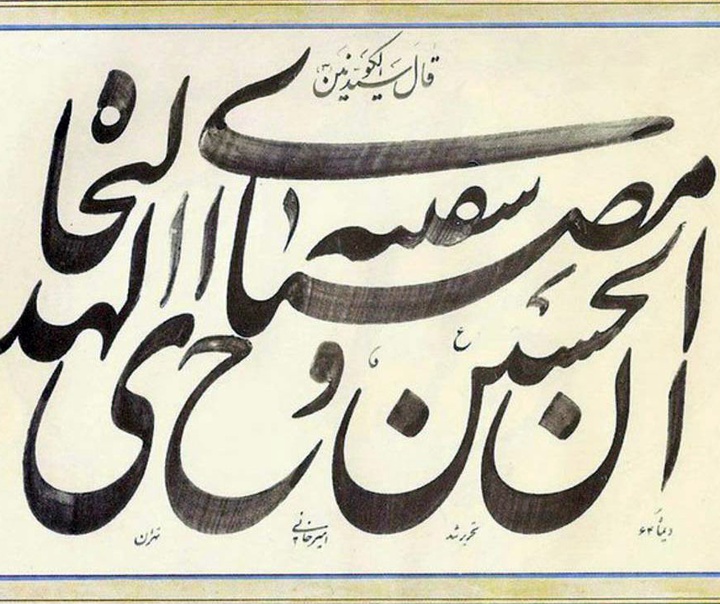 قال سید الکونین ص
ان الحسین ع مصباح الهدی و سفینه النجاه
دیماه ۶۴ تحریر شد امیرخانی تهران